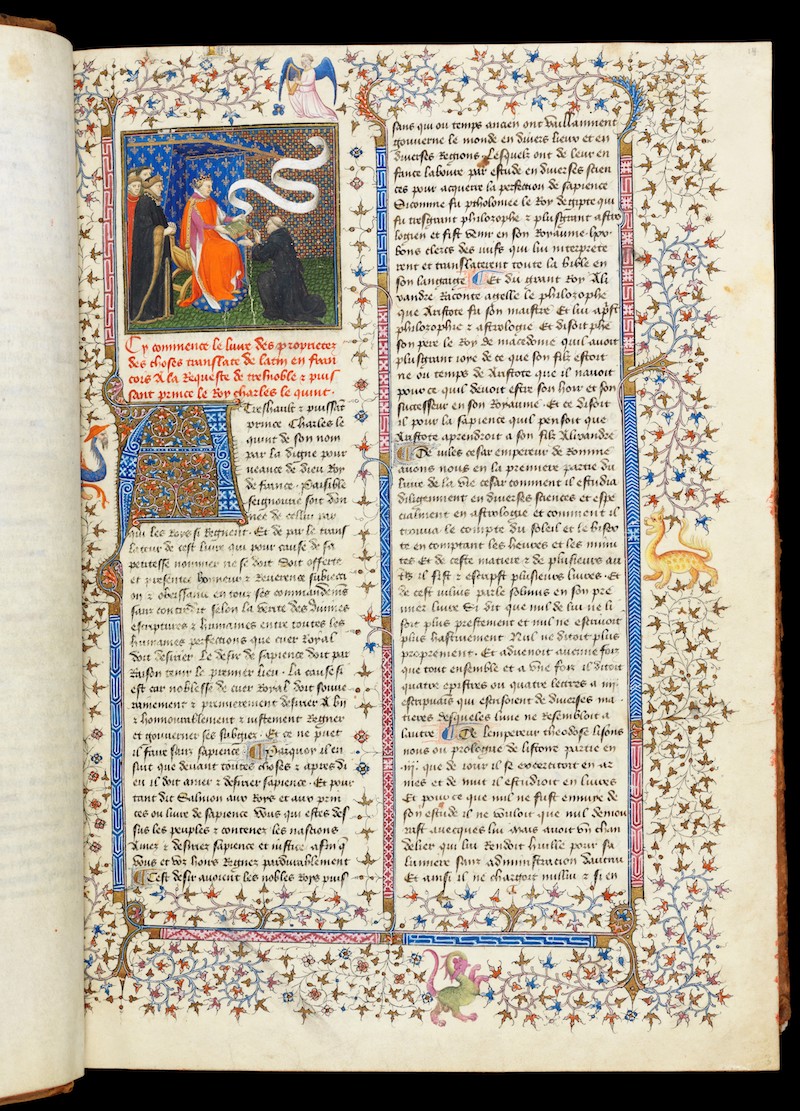 Cy commence le livre des proprietez
des choses translate de latin en fran
cois A la Requeste de tresnoble & puis
sant prince le Roy charles le quint.
A Treshault & puissāt
prince Charles le
quint de son nom
par la digne pour
veance de dieu Roy
de france. Paisible
seignourie soit don
nee de cellui par
qui les Roys si Regnent. Et de par le trans
lateur de cest livre qui pour cause de sa
petitesse nommer ne se doit. Soit offerte
et presentee honneur & Reverence subiecti
on & obeissance en tous ses commandemēs
sans contredit selon la verite des divines
escriptures & humaines entre toutes les
humaines perfections que cuer Royal
doit desirer. Le desir de sapience doit par
Raison tenir le premier lieu. La cause si
est car noblesse de cuer Royal doit souve
rainement & premierement desirer A biē
& honnourablement & iustement Regner
et gouverner ses subgiez. Et ce ne puet
il faire sans sapience. Parquoy il en
suit que devant toutes choses & apres di
eu il doit amer & desirer sapience. Et pour
tant dit Salmon aux Roys et aux prin
ces ou livre de sapience Vous qui estes des
sus les peuples & contenez les nascions
Amez & desirez sapience et iustice affin q̄
Vous et voz hoirs Regnez pardurablement
Cest desir avoient les nobles Roys puis
18
sans qui ou temps ancien ont vaillanment
gouverne le monde en divers lieux et en
diverses Regions. Lesquelz ont de leur en
fance laboure par estude en diverses scien
ces pour acquerre la perfection de sapience
Sicomme fu ptholomee le Roy degipte qui
fu tresgrant philozophe & plusgrant astro
logien et fist venir en son Royaume
bons clercs des iuifs qui lui interprete
rent et translaterent toute la bible en
son langaige. Et du grant Roy Ali
xandre Raconte agelle le philozophe
que Aristote fu son maistre Et lui aprist
philozophie & astrologie Et disoit phe
son pere le Roy de macedoine quil avoit
plusgrant ioye de ce que son filz estoit
ne ou temps de Aristote que il navoit
pour ce quil devoit estre son hoir et son
successeur en son Royaume. Et ce disoit
il pour la sapience quil pensoit que
Aristote aprendroit a son filz Alixandre
De iulles cesar empereur de Romme
avons nous en la premiere partie du
livre de la vie cesar comment il estudia
diligenment en diverses sciences et espe
cialment en astrologie et comment il
trouva le compte du soleil et le bisex
te en comptant les heures et les minu
tes Et de ceste matiere & de plusieurs au
tres il fist & escripst plusieurs livres. Et
de cest iulius parle solinus en son pre
mier livre Si dit que nul de lui ne li
soit plus prestement et nul ne escrivoit
plus hastivement Nul ne dictoit plus
proprement. Et advenoit aucune fois
que tout ensemble et a une fois il dictoit
quatre epistres ou quatre lettres a iiij
escripvains qui estoient de diverses ma
tieres desqueles lune ne Resembloit a
lautre. De lempereur theodose lisons
nous ou prologue de listoire partie en
iij. que de iour il se exercitoit en ar
mes et de nuit il estudioit en livres
Et pour ce que nul ne fust ennuie de
son estude il ne vouloit que nul demou
rast avecques lui Mais avoit un chan
delier qui lui Rendoit huille pour sa
lumiere sans administracion dautrui
Et ainsi il ne chargoit nullui & si en